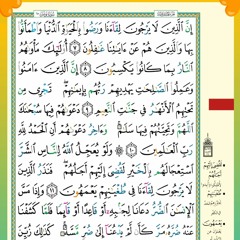 إِنَّ ٱلَّذِينَ لَا يَرۡجُونَ لِقَآءَنَا وَرَضُواْ بِٱلۡحَيَوٰةِ ٱلدُّنۡيَا وَٱطۡمَأَنُّواْ
بِهَا وَٱلَّذِينَ هُمۡ عَنۡ ءَايَٰتِنَا غَٰفِلُونَ ٧ أُوْلَٰٓئِكَ مَأۡوَىٰهُمُ
ٱلنَّارُ بِمَا كَانُواْ يَكۡسِبُونَ ٨ إِنَّ ٱلَّذِينَ ءَامَنُواْ
وَعَمِلُواْ ٱلصَّٰلِحَٰتِ يَهۡدِيهِمۡ رَبُّهُم بِإِيمَٰنِهِمۡۖ تَجۡرِي مِن
تَحۡتِهِمُ ٱلۡأَنۡهَٰرُ فِي جَنَّٰتِ ٱلنَّعِيمِ ٩ دَعۡوَىٰهُمۡ فِيهَا سُبۡحَٰنَكَ
ٱللَّهُمَّ وَتَحِيَّتُهُمۡ فِيهَا سَلَٰمٞۚ وَءَاخِرُ دَعۡوَىٰهُمۡ أَنِ ٱلۡحَمۡدُ لِلَّهِ
رَبِّ ٱلۡعَٰلَمِينَ ١٠ وَلَوۡ يُعَجِّلُ ٱللَّهُ لِلنَّاسِ ٱلشَّرَّ
ٱسۡتِعۡجَالَهُم بِٱلۡخَيۡرِ لَقُضِيَ إِلَيۡهِمۡ أَجَلُهُمۡۖ فَنَذَرُ ٱلَّذِينَ
لَا يَرۡجُونَ لِقَآءَنَا فِي طُغۡيَٰنِهِمۡ يَعۡمَهُونَ ١١ وَإِذَا مَسَّ
ٱلۡإِنسَٰنَ ٱلضُّرُّ دَعَانَا لِجَنۢبِهِۦٓ أَوۡ قَاعِدًا أَوۡ قَآئِمٗا فَلَمَّا كَشَفۡنَا
عَنۡهُ ضُرَّهُۥ مَرَّ كَأَن لَّمۡ يَدۡعُنَآ إِلَىٰ ضُرّٖ مَّسَّهُۥۚ